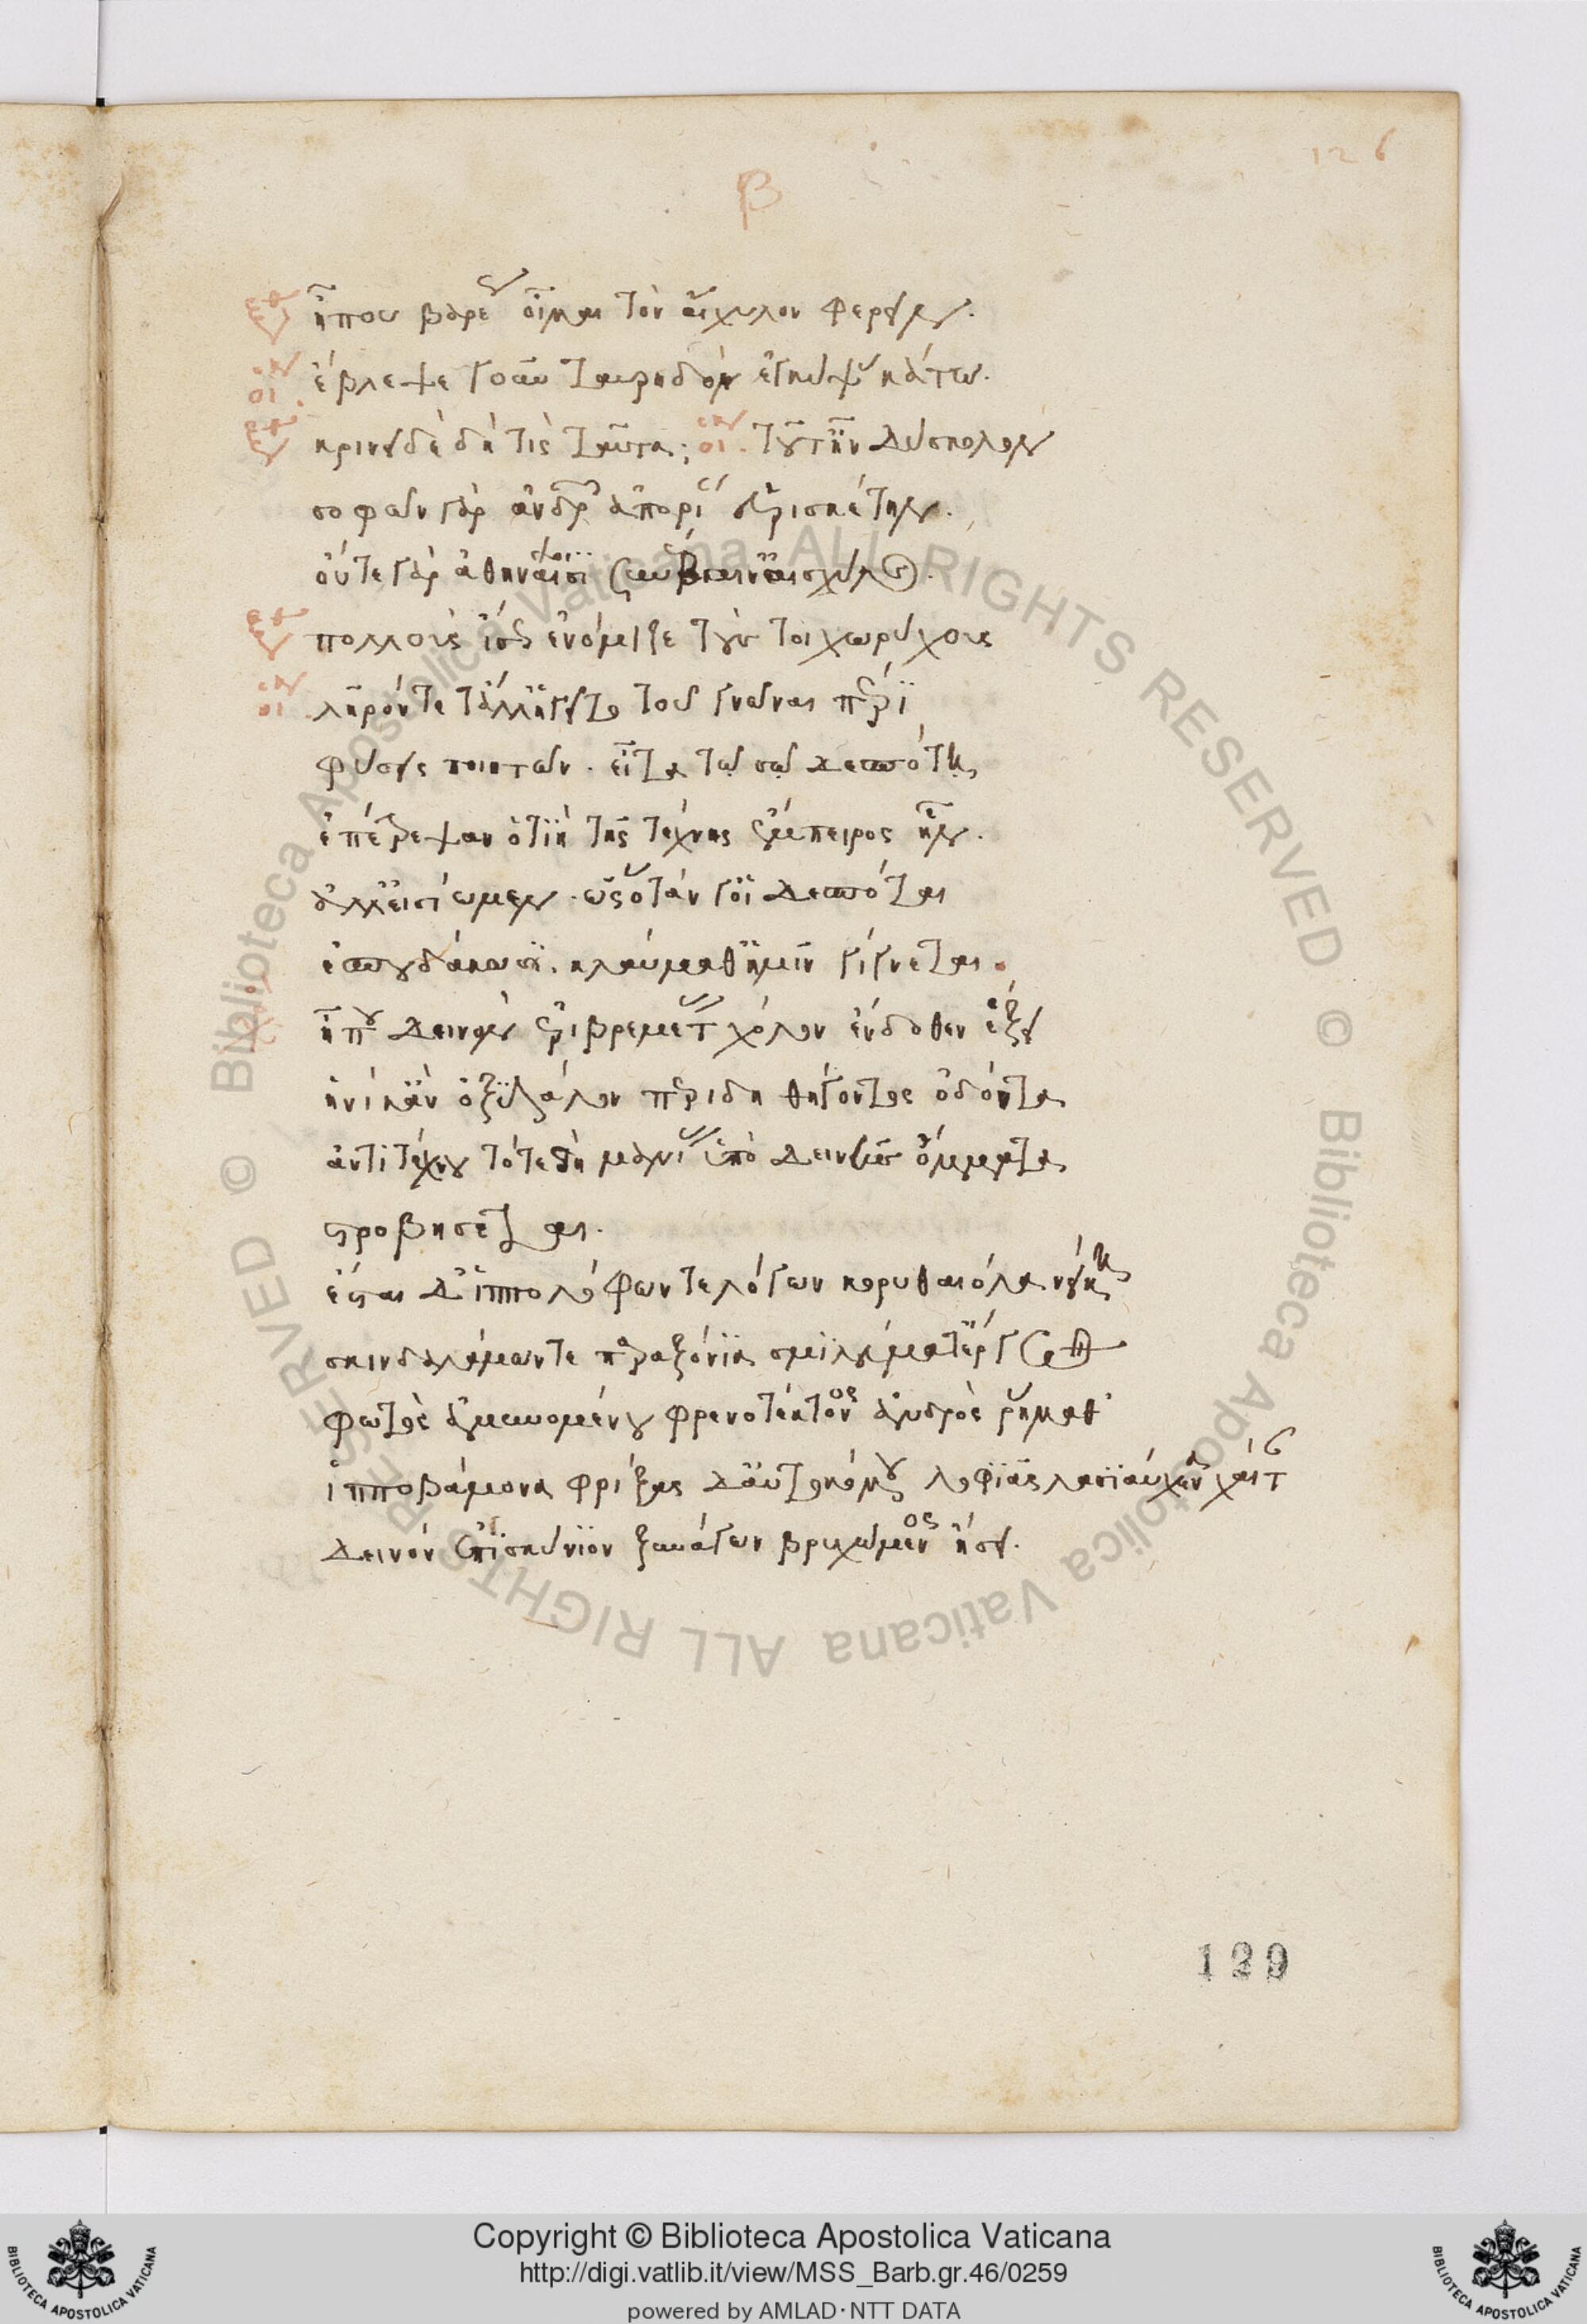 126
β
ξαν ἦπου βαρέως οἶμαι τὸν αἰσχύλον φέρειν.
οἰκ ἔβλεψε γοῦν ταυρηδὸν ἐγκύψας κάτω.
ξαν κρινεῖ δὲ δὴ τίς ταῦτα; οἰκ τοῦτ' ἦν δύσκολον
σοφῶν γὰρ ἀνδρῶν ἀπορίαν εὑρισκέτην.
οὔτε γὰρ ἀθηναίοισι συνέβαιν' αἰσχύλος.
ξαν πολλοὺς ἴσως ἐνόμιζε τοὺς τοιχωρύχους
οἰκ λῆρόν τε τἄλλ' ἡγεῖτο τοῦ γνῶναι πέρι
φύσεις ποιητῶν. εἶτα τῷ σῷ δεσπότῃ
ἐπέτρεψαν ὁτιὴ τῆς τέχνης ἔμπειρος ἦν.
ἀλλ' εἰσίωμεν. ὡς ὅταν γ' οἱ δεσπόται
ἐσπουδάκωσι. κλαύμαθ' ἡμῖν γίγνεται.
ἦ που δεινὸν ἐριβρεμέτας χόλον ἔνδοθεν ἕξει
ἡνίκ' ἂν ὀξύλαλον περ ἴδῃ θήγοντος ὀδόντα
ἀντιτέχνου τότε δὴ μανίας ὑπὸ δεινῆς ὄμματα
στροβήσεται.
ἔσται δ' ἱππολόφων τε λόγων κορυθαίολα νείκη
σκινδαλάμων τε παραξόνια σμιλεύματά τ' ἔργων
φωτὸς ἀμυνομένου φρενοτέκτονος ἀνδρὸς ῥήμαθ'
ἱπποβάμονα φρίξας δ' αὐτοκόμου λοφιᾶς λασιαύχενα χαίταν
δεινὸν ἐπισκύνιον ξυνάγων βρυχώμενος ἥσει.
129
Copyright © Biblioteca Apostolica Vaticana
http://digi.vatlib.it/view/MSS_Barb.gr.46/0259
powered by AMLAD·NTT DATA
BIBLIOTECA APOSTOLICA VATICANA
BIBLIOTECA APOSTOLICA VATICANA
© Biblioteca Apostolica Vaticana ALL RIGHTS RESERVED © Biblioteca Apostolica Vaticana ALL RIGHTS RESERVED